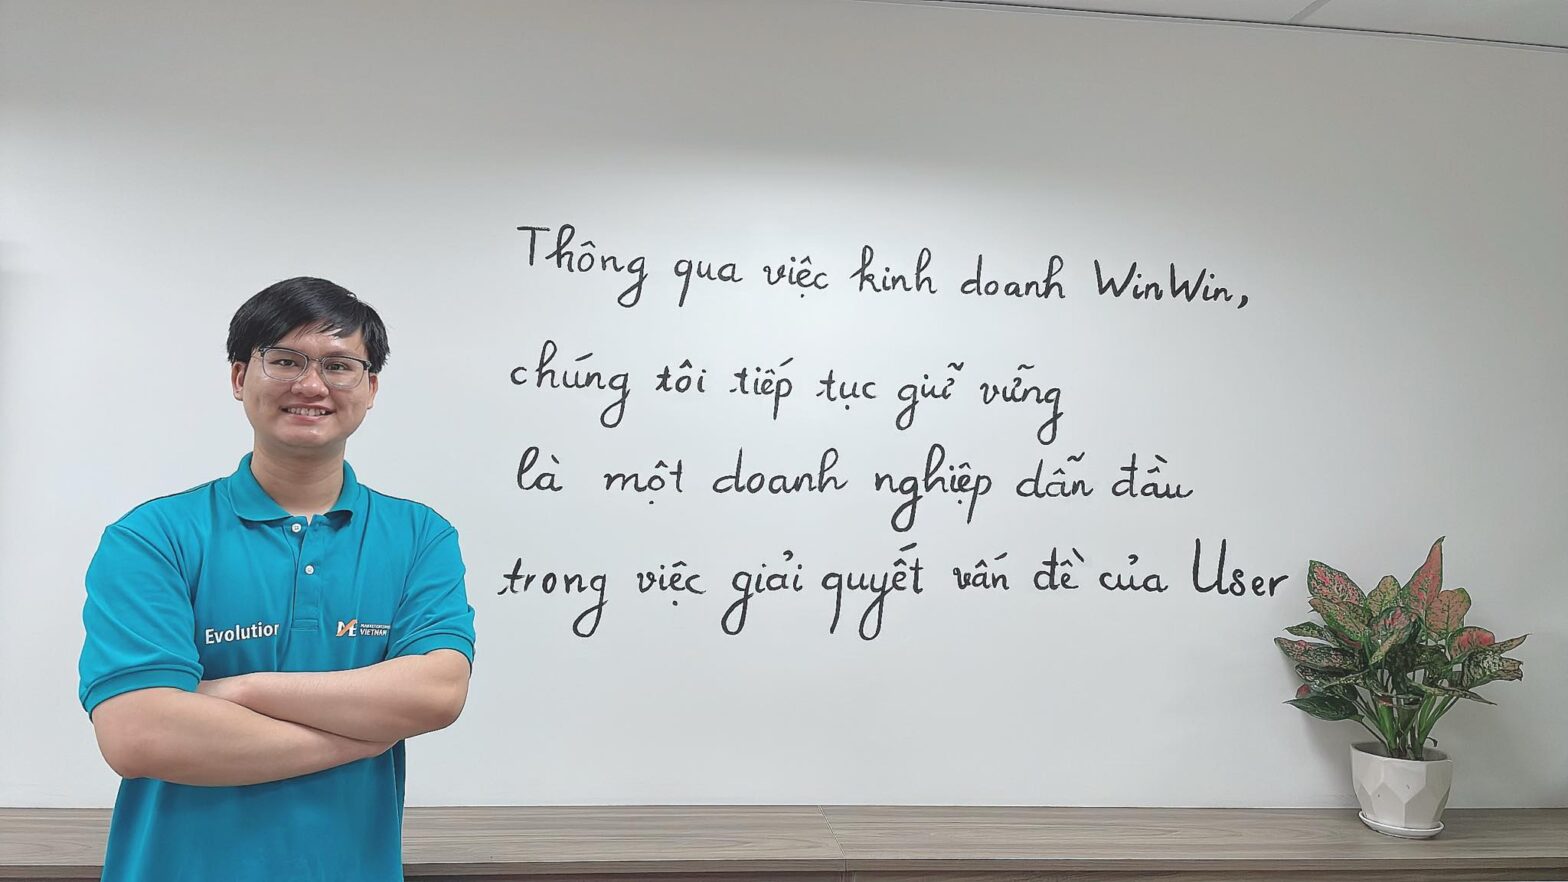 Thông qua việc kinh doanh WinWin,
chúng tôi tiếp tục giữ vững
là một doanh nghiệp dẫn đầu
trong việc giải quyết vấn đề của User
Evolution
VIETNAM